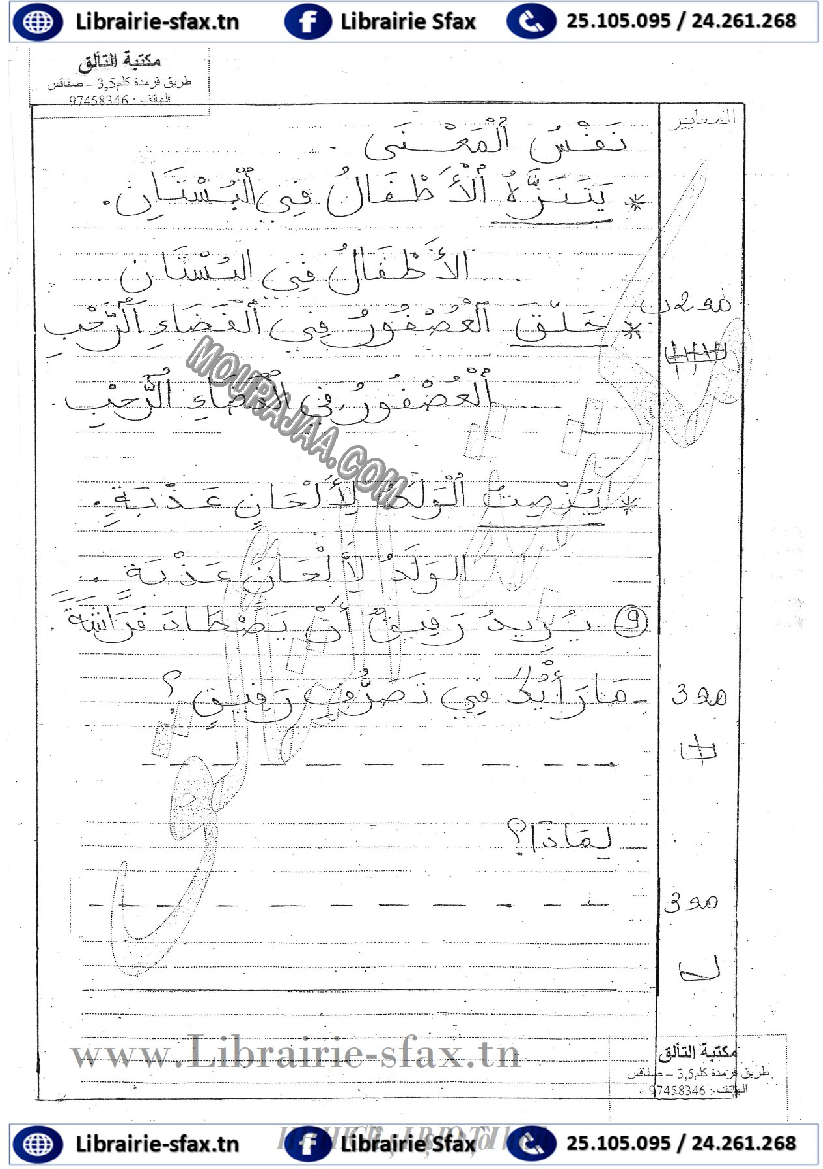 Librairie-sfax.tn Librairie Sfax 25.105.095 / 24.261.268
مكتبة التألق
طريق قرمدة كلم3,5 – صفاقس
الهاتف : 97458346
المعايير
نَفْسُ ٱلْمَعْنَى .
* يَتَنَزَّهُ ٱلْأَطْفَالُ فِي ٱلْبُسْتَانِ.
... الأَطْفَالُ فِي البُسْتَانِ
مع 2 ب
* حَلَّقَ ٱلْعُصْفُورُ فِي ٱلْفَضَاءِ ٱلرَّحْبِ
MOURAJAA.COM
... ٱلْعُصْفُورُ فِي ٱلْفَضَاءِ ٱلرَّحْبِ.
* يُنْصِتُ ٱلْوَلَدُ لِأَلْحَانٍ عَذْبَةٍ.
... الوَلَدُ لِأَلْحَانٍ عَذْبَةٍ ..
9 يُرِيدُ رَفِيقٌ أَنْ يَصْطَادَ فَرَاشَةً.
- مَا رَأْيُكَ فِي تَصَرُّفِ رَفِيقٍ ؟
مع 3
- لِمَاذَا؟
مع 3
www.Librairie-sfax.tn
مكتبة التألق
طريق قرمدة كلم3,5 – صفاقس
الهاتف : 97458346
Librairie-sfax.tn Librairie Sfax 25.105.095 / 24.261.268